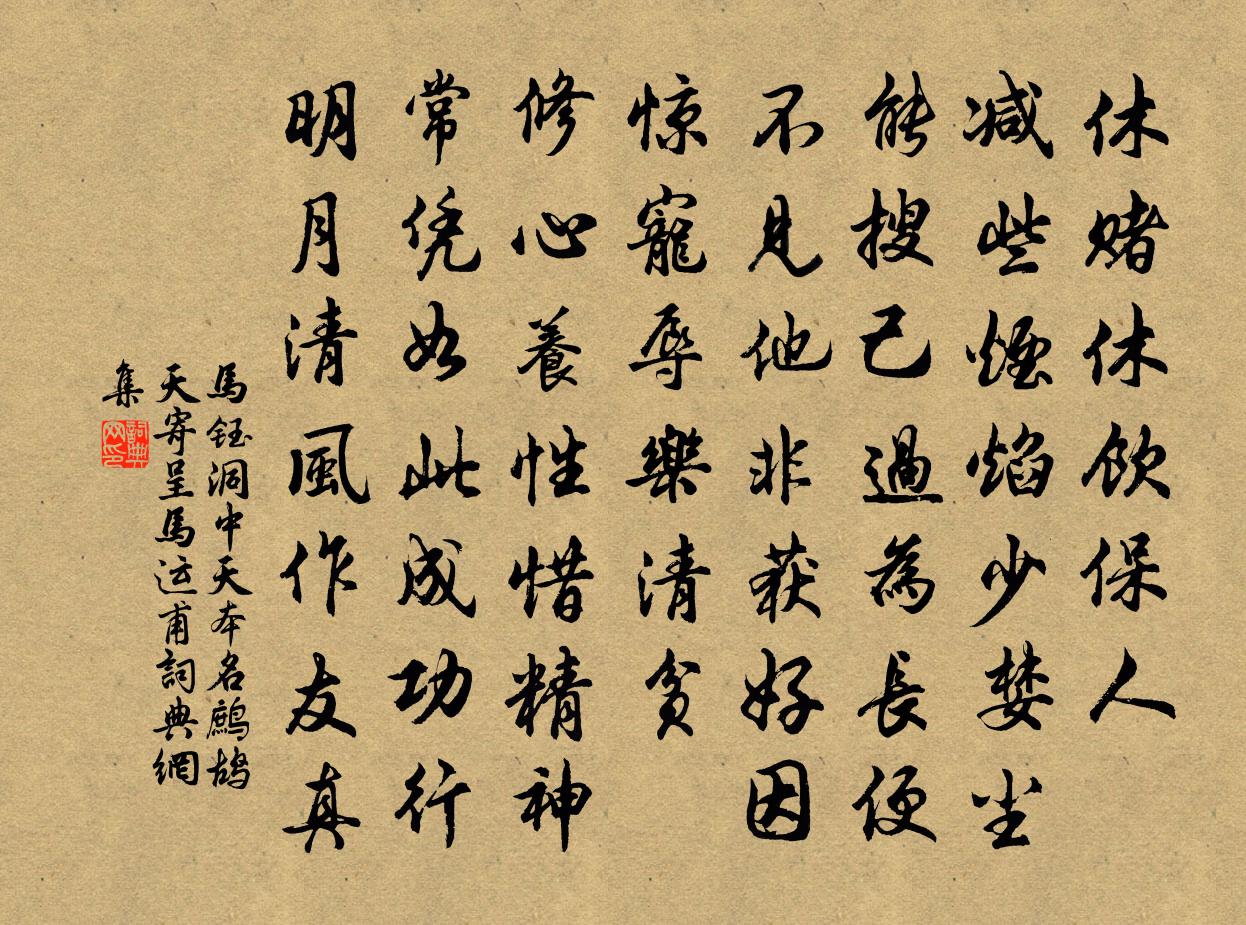 休赌休飲保人
减些煙焰少婪尘
能搜己過為長便
不見他非获好因
惊寵辱樂清贫
修心養性惜精神
常凭如此成功行
明月清風作友真
馬鈺洞中天本名鷓鴣
天寄呈馬运甫詞典網
集
詞典
网印